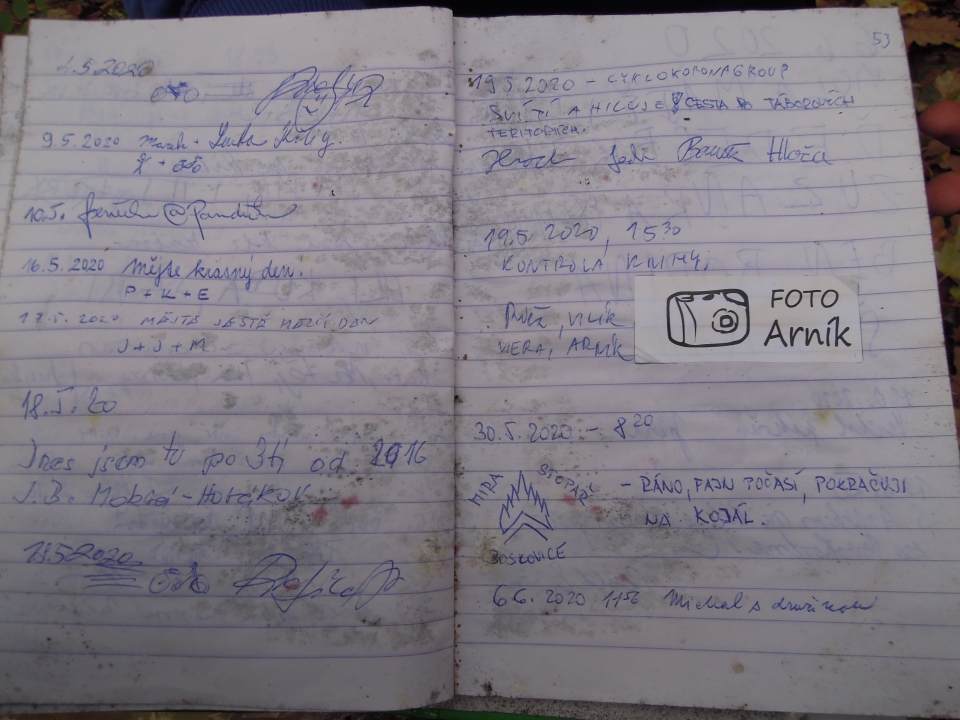 .5.2020
9.5.2020 Marek +
10.5. @
16.5.2020 Mějte krásný den!
P + K + E
17.5.2020 MĚJTE JEŠTĚ HEZČÍ DEN
J + J + M
18.5.20
Dnes jsem tu po 3tí od 2016
J. B. Mokrá-Horákov
18.5.2020
53
19.5.2020 - CYKLOKOPONAGROUP
SVIŠTÍ A CESTA PO TÁBOROVÝCH
TERITORIÍCH.
Hroch Hloža
19.5.2020, 15 30
KONTROLA KNIHY.
VLK
VERA, ARNÍK
FOTO
Arník
30.5.2020 - 8 20
MIRA STOPAŘ
BOSKOVICE
- RÁNO, FAJN POČASÍ, POKRAČUJI
NA KOJÁL.
6.6. 2020 11 56 Michal s družinou